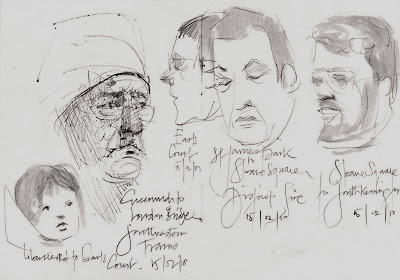 Earls
Court
15/02/10
St James Park
to
Sloane Square
District Line
15/02/10
Sloane Square
to South Kensington
15/02/10
Greenwich to
London Bridge
Southeastern
Trains
15/02/10
to Earls
Court. 15/02/10